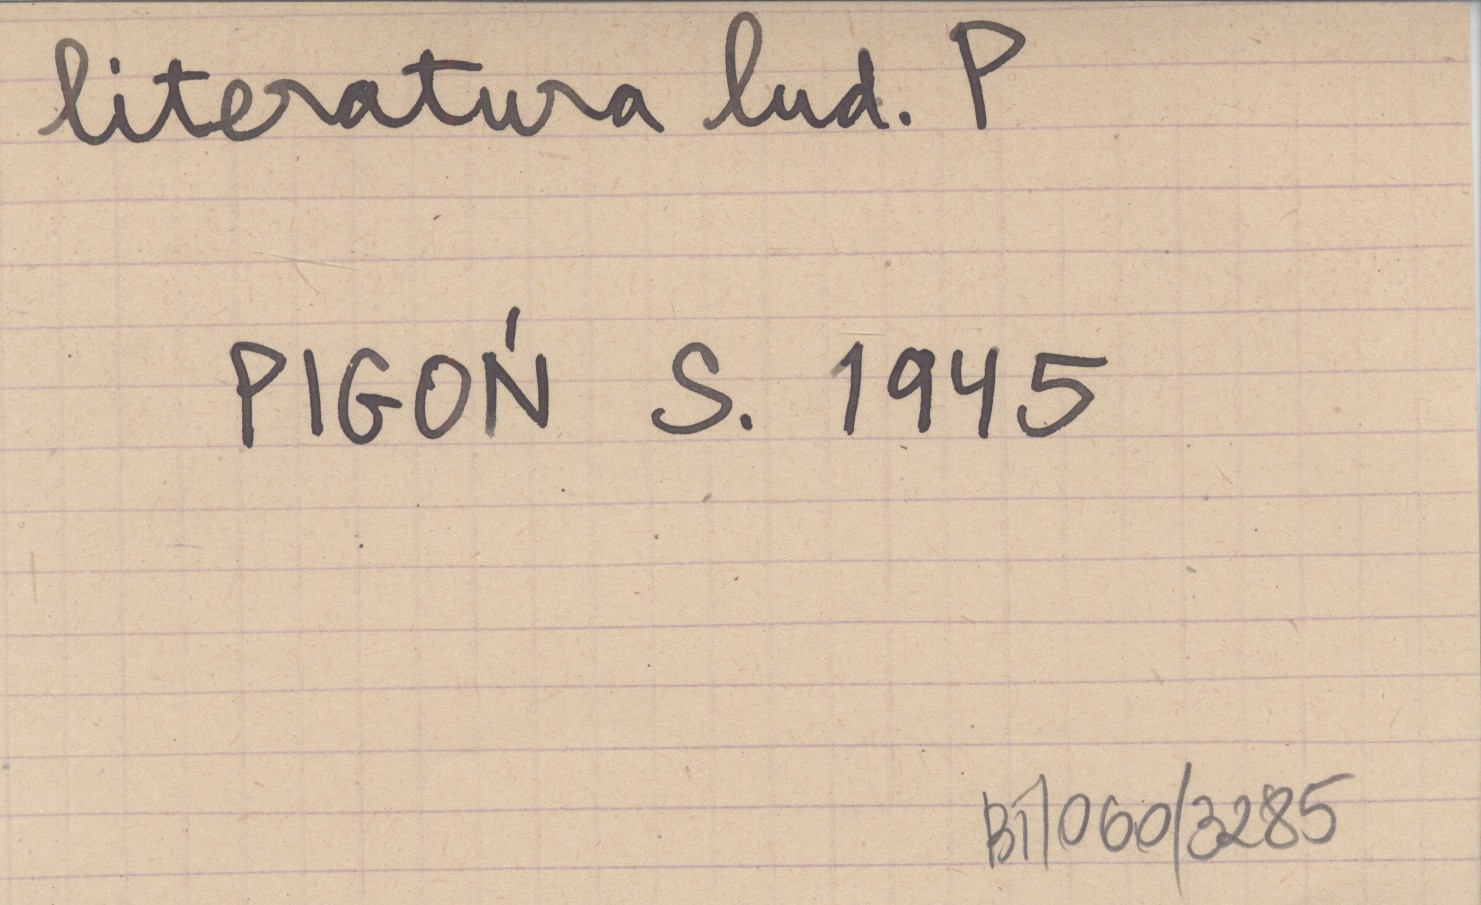 literatura lud. P
PIGOŃ S. 1945
BI/060/3285